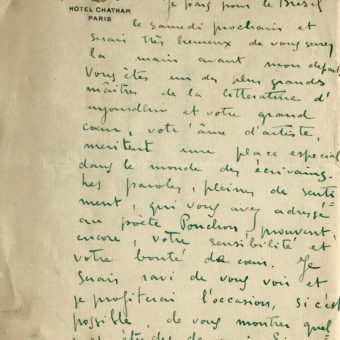 HOTEL CHATHAM
PARIS
Je pars pour le Brésil
le samedi prochain et
serais très heureux de vous serrer
la main avant mon départ
Vous êtes un des plus grands
maîtres de la littérature d'
aujourd'hui et votre grand
cœur, votr'âme d'artiste,
meritent une place especial
dans le monde des écrivains.
Les paroles, pleines de senti=
ment, qui vous avez adressé
au poète Ponchon, prouvent,
encore, votre sensibilité et
votre bonté de cœur. Je
serais ravi de vous voir et
je profiterai l'occasion, si c'est
possible, de vous montrer quel